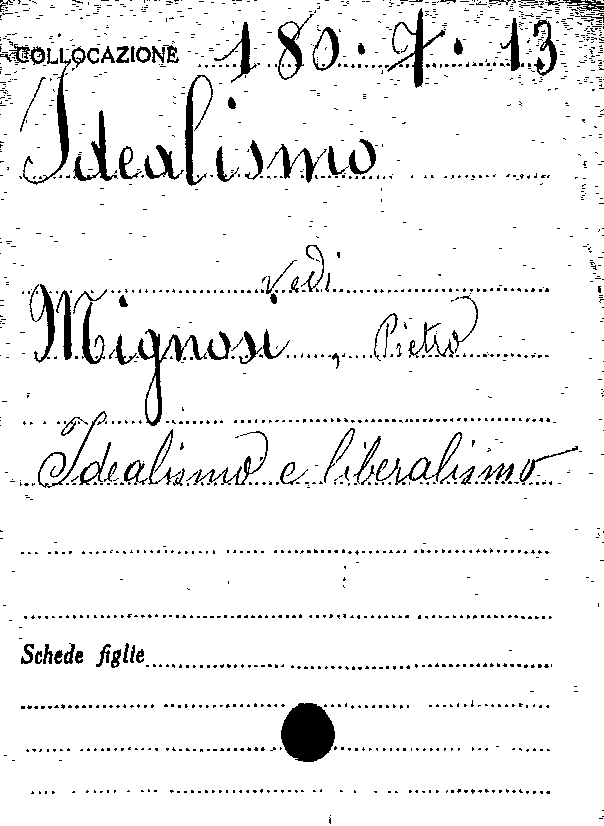 COLLOCAZIONE 180.7.13
Idealismo
vedi
Mignosi, Pietro
Idealismo e liberalismo
Schede figlie